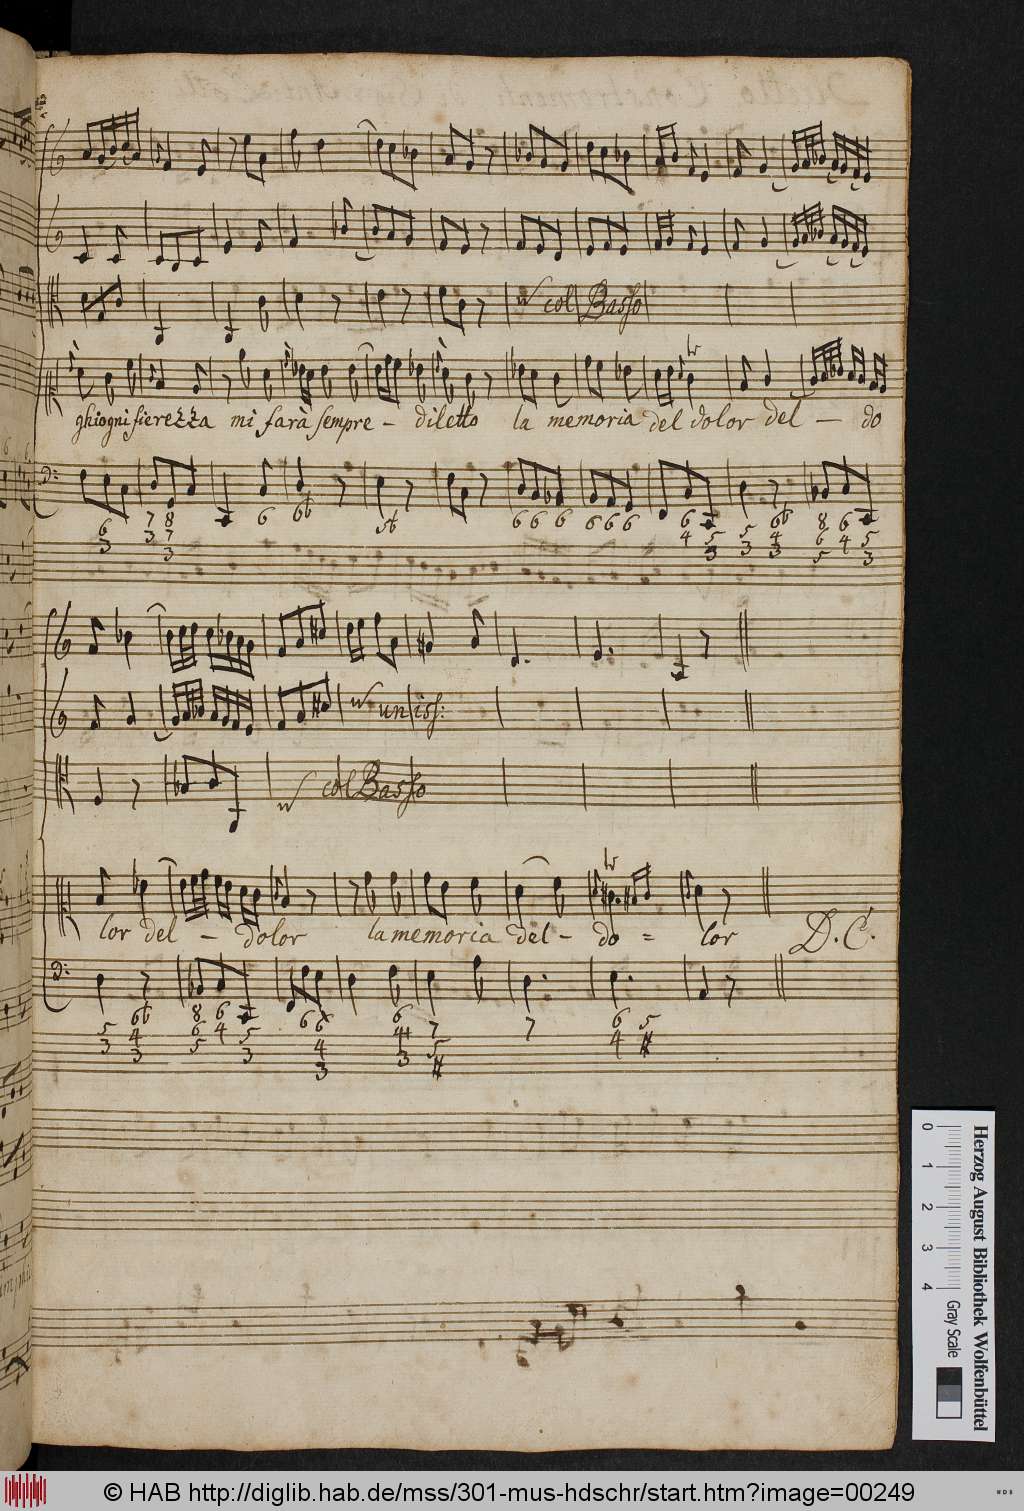 ghiogni fierezza mi farà sempre - diletto la memoria del dolor del - do
col Basso
6 3 7 3 8 7 3 6 6b 5b 6 6 6 6 6 6 6 4 5 3 5 3 6b 4 3 8 6 5 6 4 5 3
uniss:
col Basso
lor del - dolor la memoria del - do = lor D.C.
5 3 6b 4 3 8 6 5 6 4 5 3 6 6 4 3 6 4 3 7 5 # 7 6 4 5 #
Herzog August Bibliothek Wolfenbüttel
0 1 2 3 4 Gray Scale
© HAB http://diglib.hab.de/mss/301-mus-hdschr/start.htm?image=00249